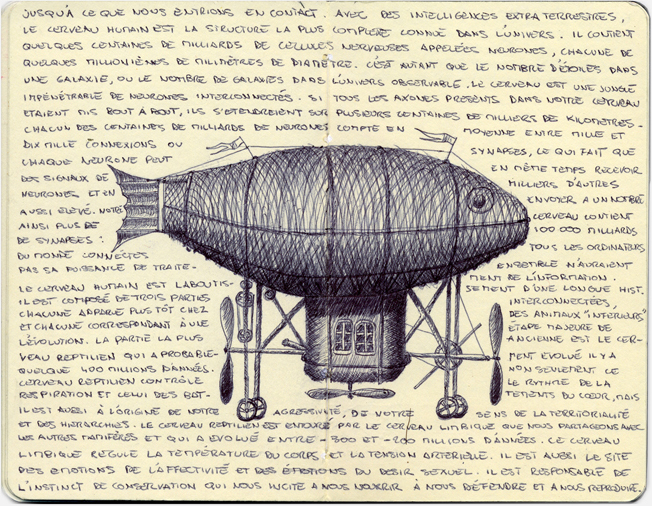 JUSQU'À CE QUE NOUS ENTRIONS EN CONTACT. AVEC DES INTELLIGENCES EXTRA TERRESTRES,
LE CERVEAU HUMAIN EST LA STRUCTURE LA PLUS COMPLEXE CONNUE DANS L'UNIVERS. IL CONTIENT
QUELQUES CENTAINES DE MILLIARDS DE CELLULES NERVEUSES APPELÉES NEURONES, CHACUNE DE
QUELQUES MILLIONIÈMES DE MILIMÈTRES DE DIAMÈTRE. C'EST AUTANT QUE LE NOMBRE D'ÉTOILES DANS
UNE GALAXIE, OU LE NOMBRE DE GALAXIES DANS L'UNIVERS OBSERVABLE. LE CERVEAU EST UNE JUNGLE
IMPÉNÉTRABLE DE NEURONES INTERCONNECTÉS. SI TOUS LES AXONES PRÉSENTS DANS NOTRE CERVEAU
ETAIENT MIS BOUT À BOUT, ILS S'ETENDREIENT SUR PLUSIEURS CENTAINES DE MILLIERS DE KILOMETRES-
CHACUN DES CENTAINES DE MILLIARDS DE NEURONES COMPTE EN MOYENNE ENTRE MILLE ET
DIX MILLE CONNEXIONS OU SYNAPSES, CE QUI FAIT QUE
CHAQUE NEURONE PEUT EN MÊME TEMPS RECEVOIR
DES SIGNAUX DE MILLIERS D'AUTRES
NEURONES ET EN ENVOYER A UN NOMBRE
AUSSI ÉLEVÉ. NOTRE CERVEAU CONTIENT
AINSI PLUS DE 100 000 MILLIARDS
DE SYNAPSES : TOUS LES ORDINATEURS
DU MONDE CONNECTÉS ENSEMBLE N'AURAIENT
PAS SA PUISSANCE DE TRAITE- MENT DE L'INFORMATION.
LE CERVEAU HUMAIN EST L'ABOUTIS- SEMENT D'UNE LONGUE HIST.
IL EST COMPOSÉ DE TROIS PARTIES INTERCONNECTÉES,
CHACUNE APPARUE PLUS TÔT CHEZ DES ANIMAUX "INTERIEURS"
ET CHACUNE CORRESPONDANT À UNE ÉTAPE MAJEURE DE
L'ÉVOLUTION. LA PARTIE LA PLUS ANCIENNE EST LE CER-
VEAU REPTILIEN QUI A PROBABLE- MENT EVOLUÉ IL Y A
QUELQUE 400 MILLIONS D'ANNÉES. NON SEULEMENT LE
CERVEAU REPTILIEN CONTRÔLE LE RYTHME DE LA
RESPIRATION ET CELUI DES BAT- TEMENTS DU CŒUR, MAIS
IL EST AUSSI À L'ORIGINE DE NOTRE AGRESSIVITÉ, DE NOTRE SENS DE LA TERRITORIALITÉ
ET DES HIERARCHIES. LE CERVEAU REPTILIEN EST ENTOURÉ PAR LE CERVEAU LIMBIQUE QUE NOUS PARTAGEONS AVEC
LES AUTRES MAMIFÈRES ET QUI A EVOLUÉ ENTRE -300 ET -200 MILLIONS D'ANNÉES. CE CERVEAU
LIMBIQUE REGULE LA TEMPÉRATURE DU CORPS ET LA TENSION ARTERIELLE. IL EST AUSSI LE SITE
DES EMOTIONS DE L'AFFECTIVITÉ ET DES ÉMOTIONS DU DESIR SEXUEL. IL EST RESPONSABLE DE
L'INSTINCT DE CONSERVATION QUI NOUS INCITE A NOUS NOURRIR À NOUS DÉFENDRE ET A NOUS REPRODUIRE.